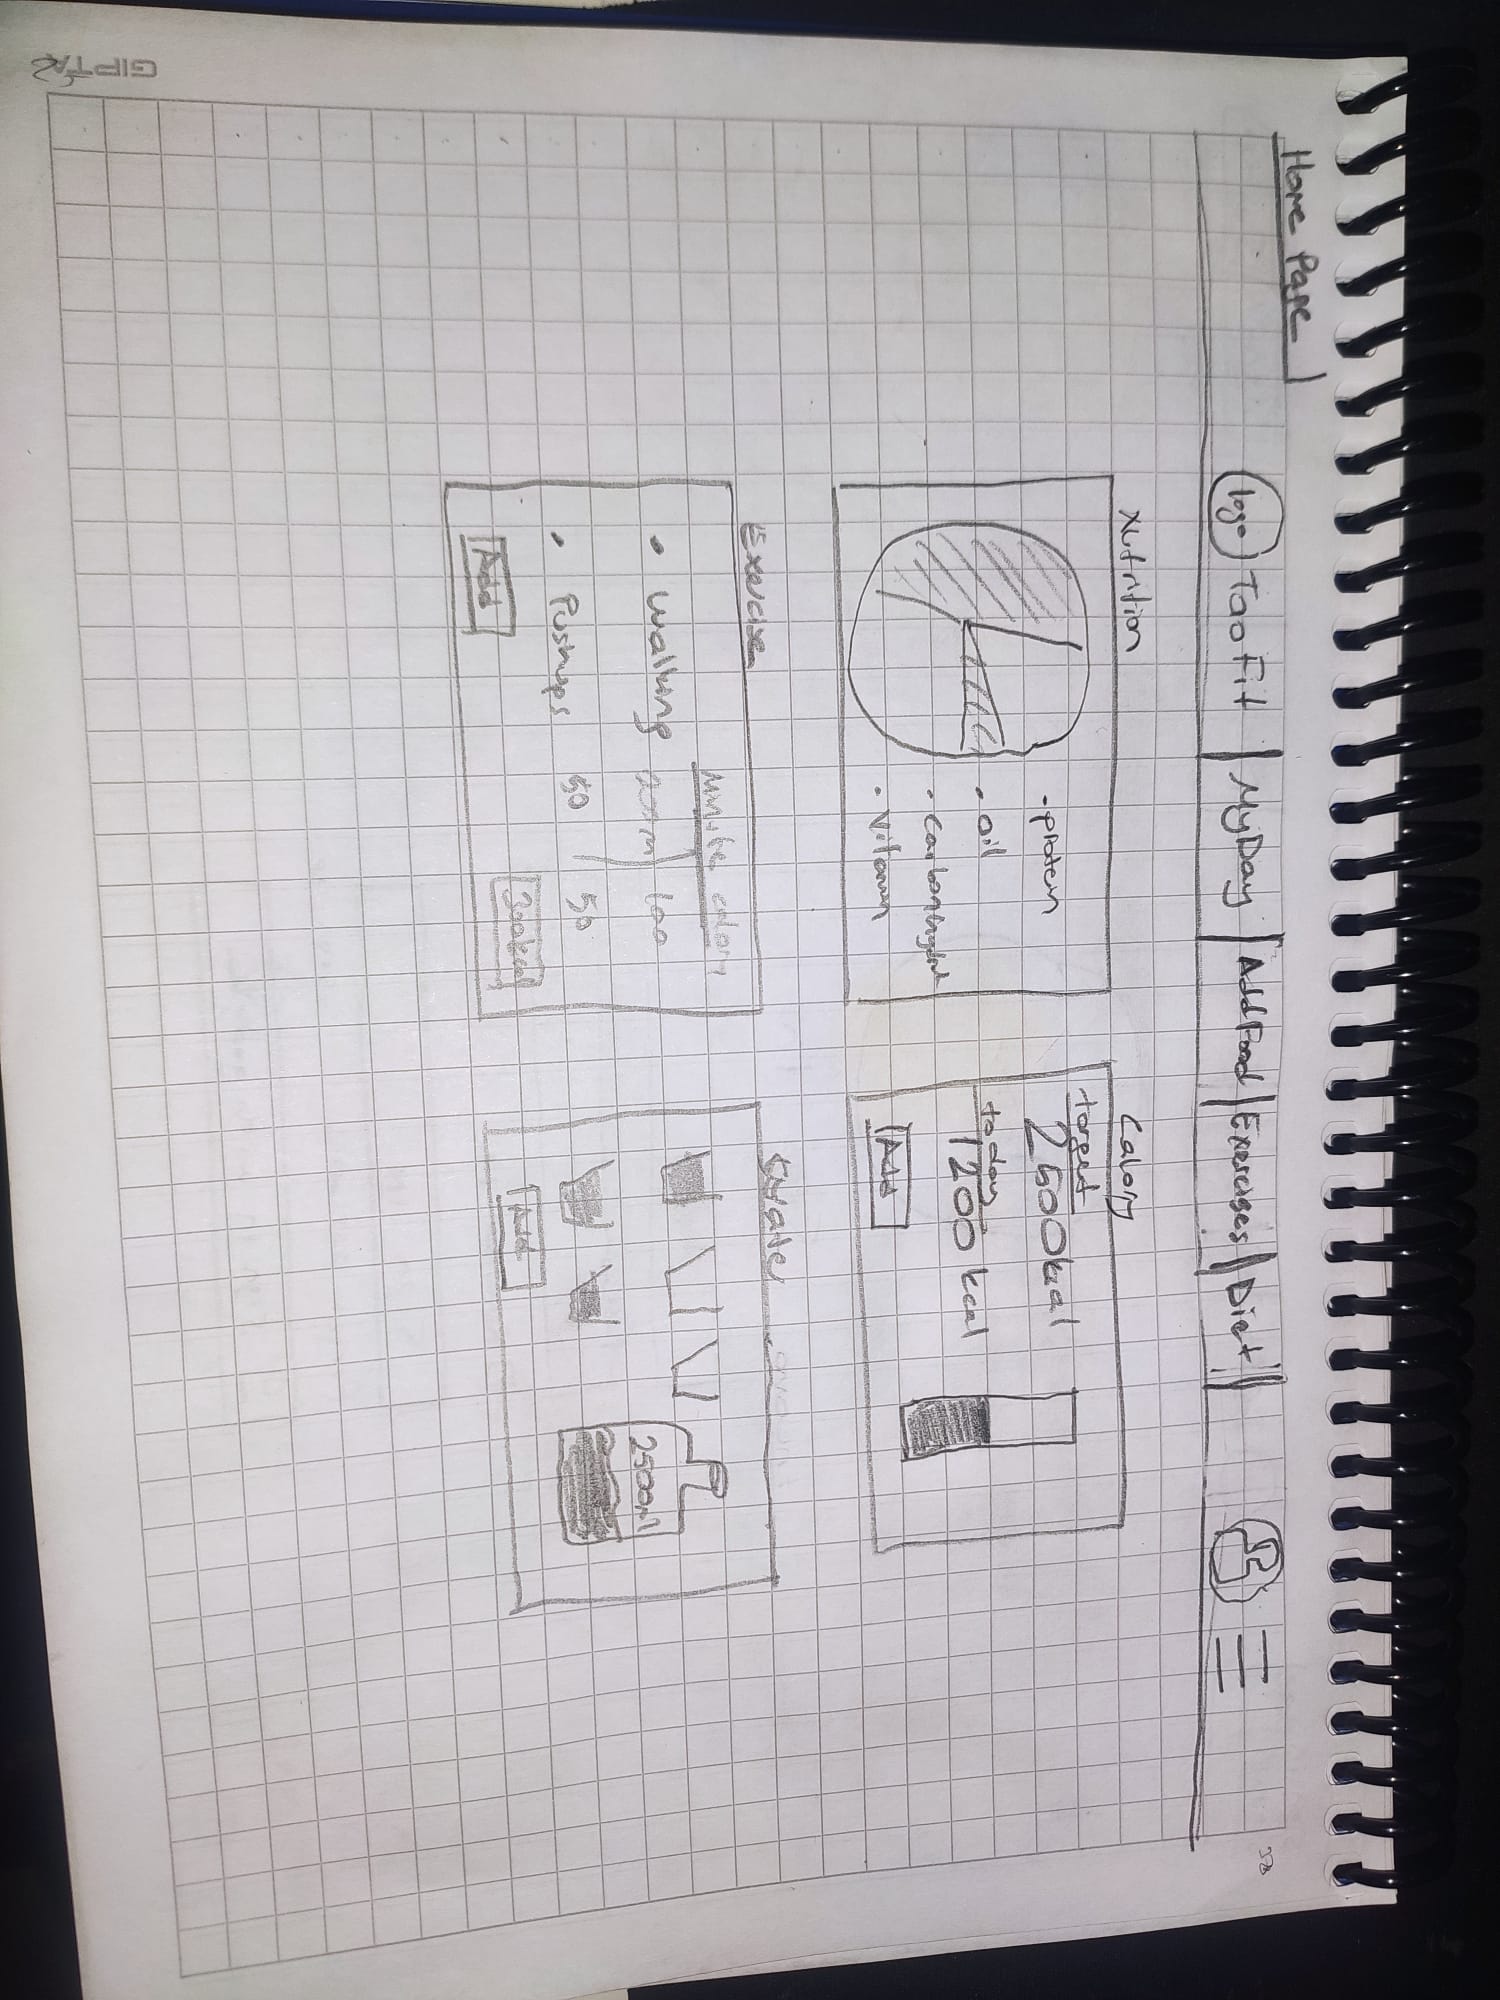 Home Page
logo TaoFit | MyDay | Add Food | Exercises | Diet
Nutrition
• protein
• oil
• carbonhydrat
• vitamin
Calory
target
2500kcal
today
1200 kcal
Add
Exercise
calory
• Walking 100
• Pushups 50 50
Add
300kcal
Water
2500ml
Add
GIPTA